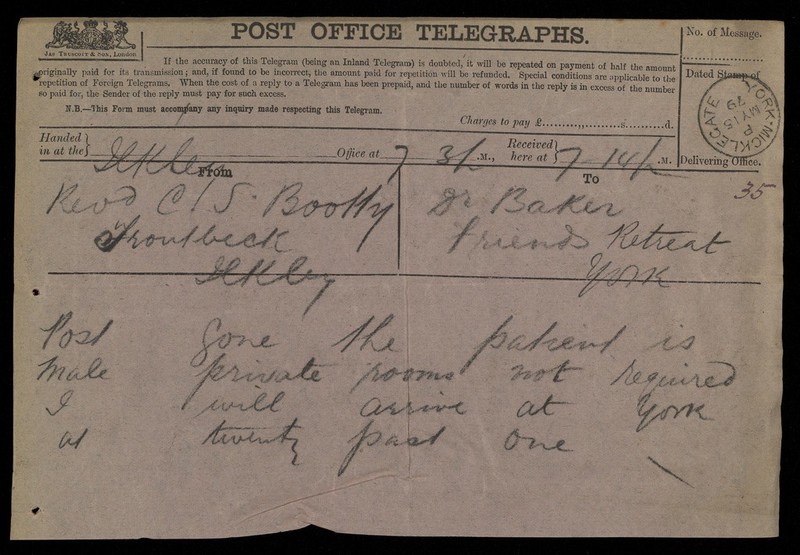 POST OFFICE TELEGRAPHS.
No. of Message.
Jas Truscott & Son, London
If the accuracy of this Telegram (being an Inland Telegram) is doubted, it will be repeated on payment of half the amount
originally paid for its transmission; and, if found to be incorrect, the amount paid for repetition will be refunded. Special conditions are applicable to the
repetition of Foreign Telegrams. When the cost of a reply to a Telegram has been prepaid, and the number of words in the reply is in excess of the number
so paid for, the Sender of the reply must pay for such excess.
N.B.—This Form must accompany any inquiry made respecting this Telegram.
Charges to pay £..........,,..........s..........d.
Dated Stamp of
YORK·MICKLEGATE
P
MY15
79
Delivering Office.
Handed in at the Ilkley Office at 7 3/ .M., Received here at 7 14/ .M.
From
To
35
Revd C. S. Bootty
Troutbeck
Ilkley
Dr Baker
Friends Retreat
York
Post gone the patient is
Male private rooms not required
I will arrive at York
at twenty past one